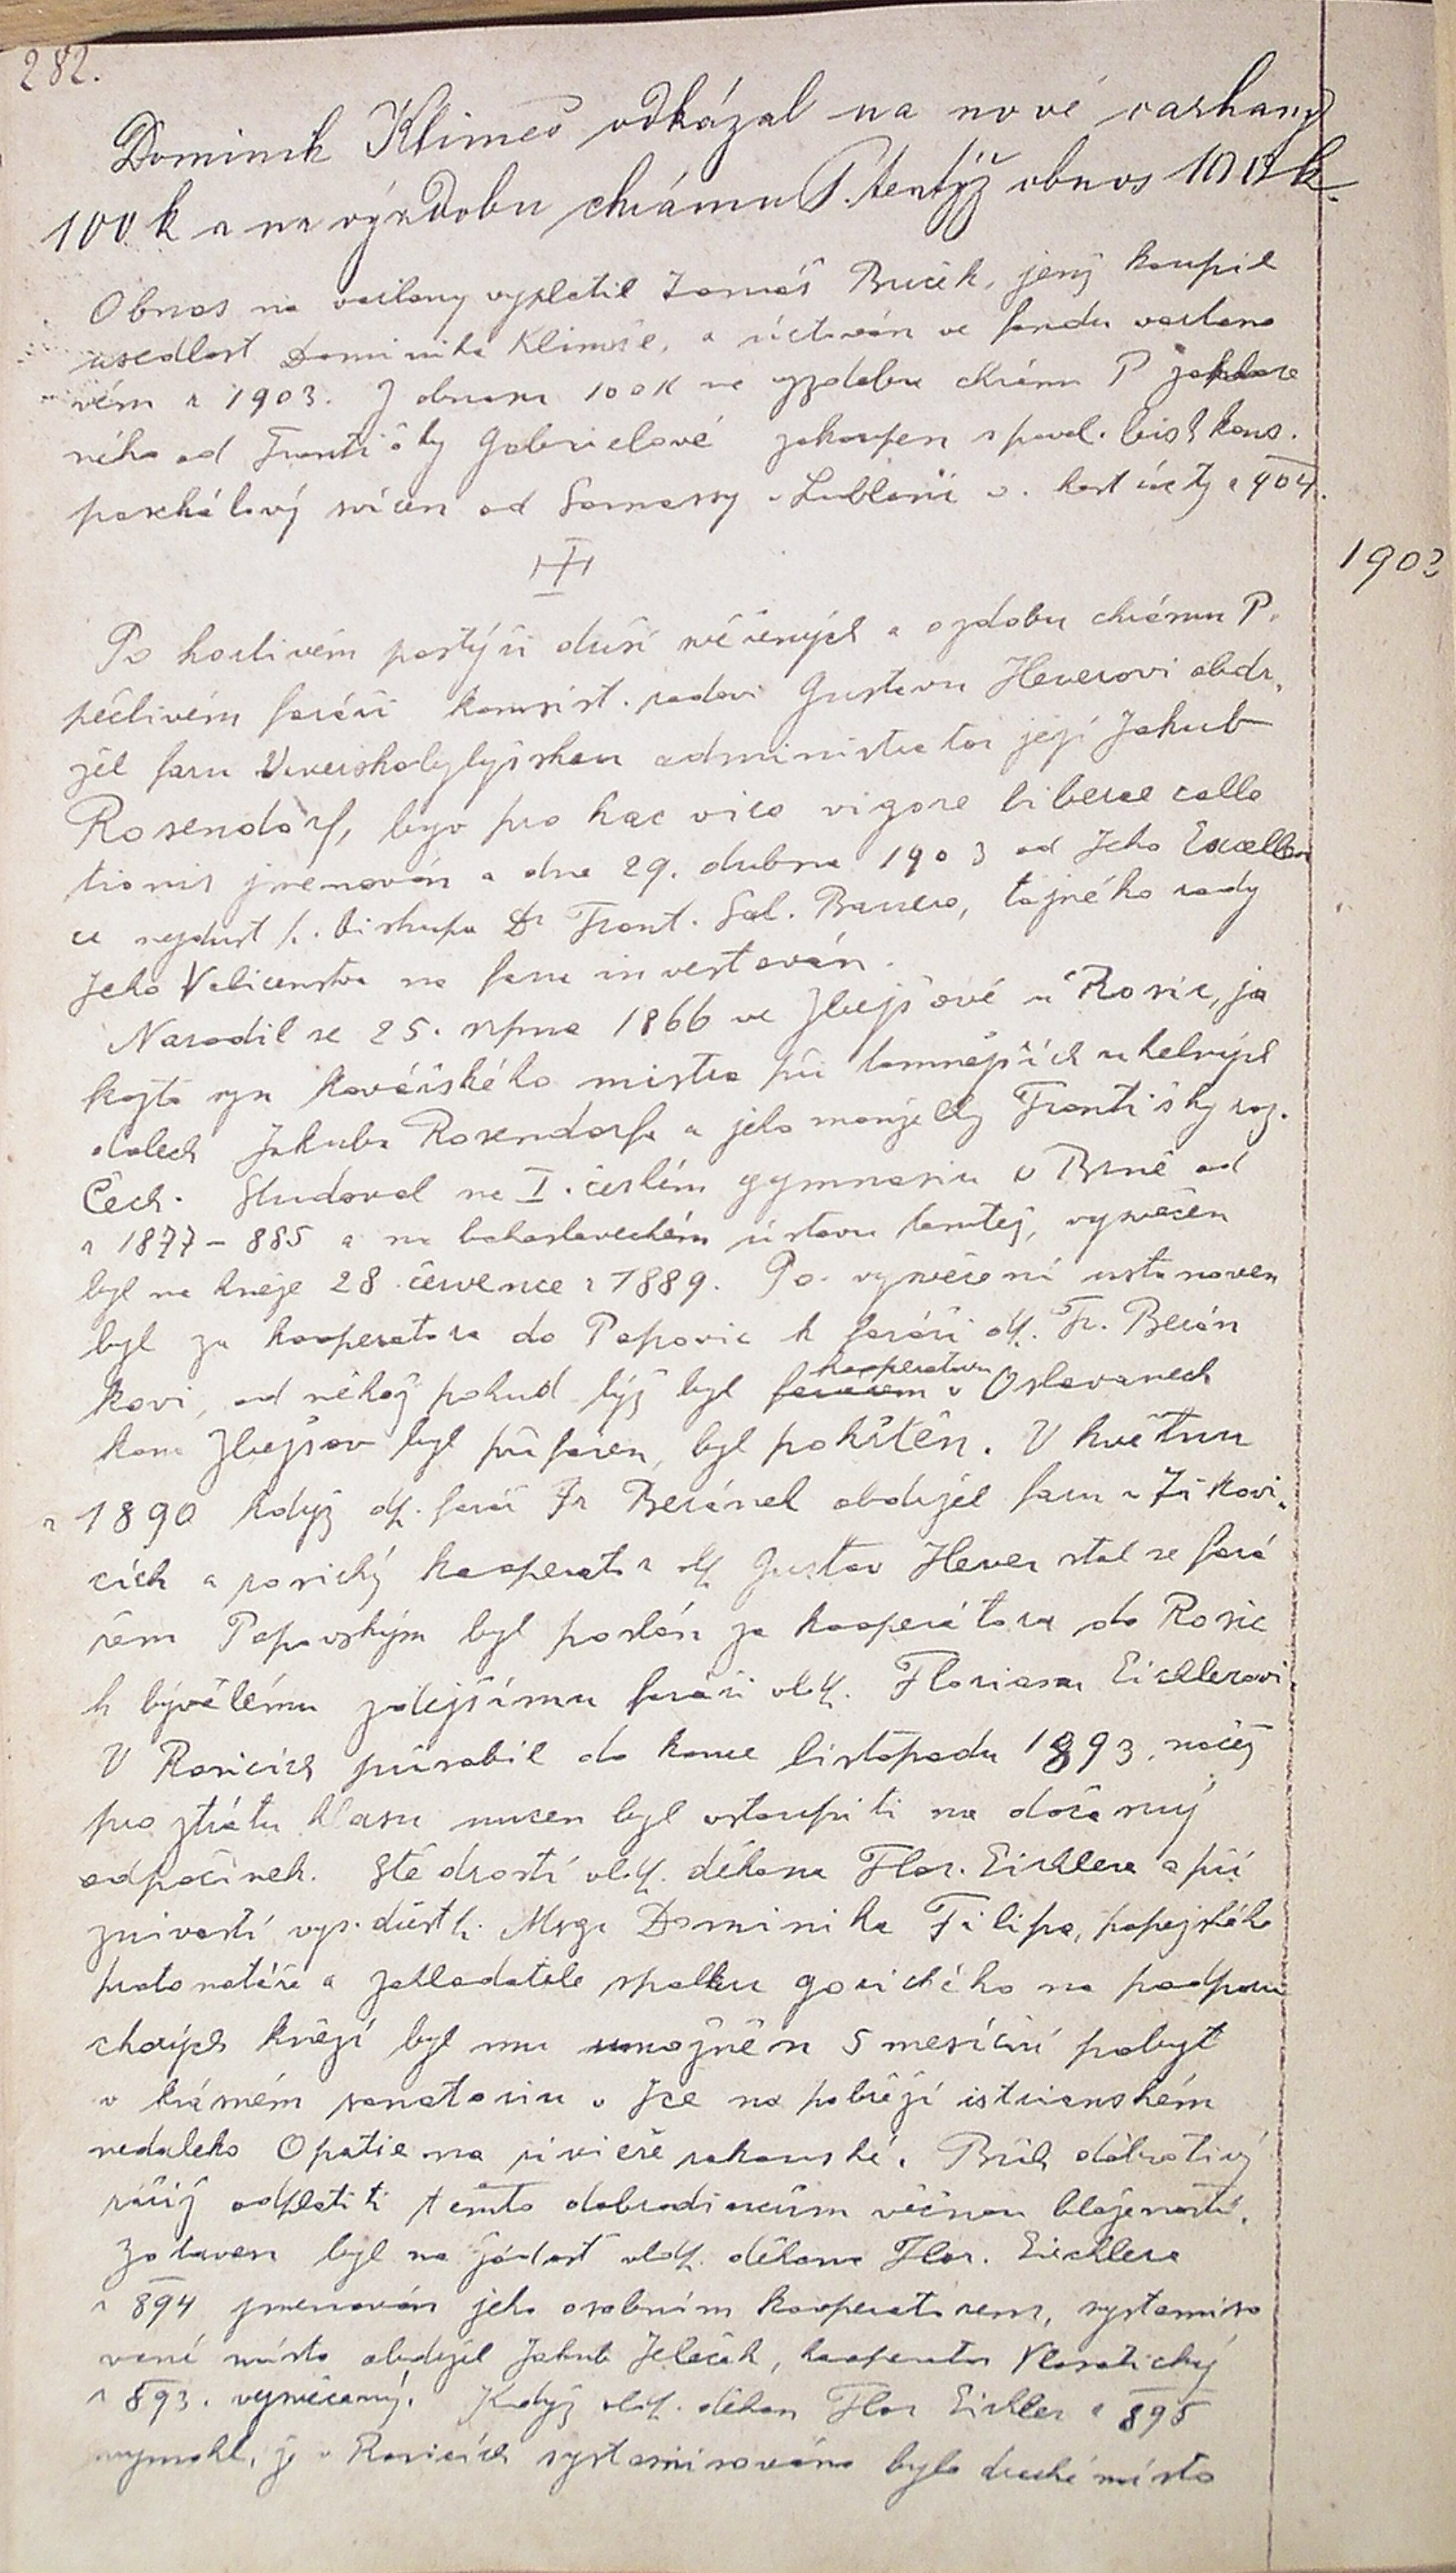 282.
Dominik Klimeš odkázal na nové varhany
100 k a na výzdobu chrámu P. tentýž obnos 100 k.
Obnos na varhany vyplatil Tomáš Buček, jenž koupil
usedlost Dominika Klimeše, a účtován ve fondu varhano
vém r 1903. Z obnosu 100 K na výzdobu chrámu P
ného od Františky Gabrielové zakoupen s povol. bisk kons.
paschálový svícen od Samassy v Lublani v. kost účty r 904.
1903
Po horlivém pastýři duší věřících a ozdobu chrámu P.
pečlivém faráři konsist. radovi Gustavu Heverovi obdr,
žel faru Veverskobytýšskou administrator její Jakub
Rosendorf, byv pro hac vice vigore liberae colla
tionis jmenován a dne 29. dubna 1903 od Jeho Excellen
ce nejdůst p. biskupa Dr Frant. Sal. Bauera, tajného rady
Jeho Veličenstva na faru investován.
Narodil se 25. srpna 1866 ve Zbejšově u Rosic, ja
kožto syn kovářského mistra při tamnějších uhelných
dolech Jakuba Rosendorfa a jeho manželky Františky roz.
Čech. Studoval na I. českém gymnasiu v Brně od
r 1877 - 885 a na bohosloveckém ústavu tamtéž, vysvěcen
byl na kněze 28 července r 1889. Po vysvěcení ustanoven
byl za kooperatora do Popovic k faráři dp. Fr. Berán
kovi, od něhož pokud týž byl farářem kooperatorem v Oslavanech
kam Zbejšov byl přifařen, byl pokřtěn. V květnu
r 1890 když dp. farář Fr Beránek obdržel faru v Žitkovi,
cích a rosický kooperator dp Gustav Hever stal se fará
řem Popovským byl poslán za kooperátora do Rosic
k bývalému zdejšímu faráři vldp. Florianu Eichlerovi.
V Rosicích působil do konce listopadu 1893, načež
pro ztrátu hlasu nucen byl vstoupiti na dočasný
odpočinek. Štědrostí vldp. děkana Flor. Eichlera a pří
znivostí vys. důst p. Msgr Dominika Filipa, papežského
protonotáře a zakladatele spolku gorického na podporu
chorých kněží byl mu umožněn 5 mesíční pobyt
v krásném sanatoriu v Ice na pobřeží istrianském
nedaleko Opatie na rivieře rakouské. Bůh dobrotivý
račiž odplatiti těmto dobrodincům věčnou blaženosti.
Zotaven byl na žádost vldp. děkana Flor. Eichlera
r 894 jmenován jeho osobním kooperatorem, systemiso
vané místo obdržel Jakub Jeleček, kooperator
r 893. vysvěcený. Když vldp. děkan Flor Eichler r 895
vymohl, že v Rosicích systemisováno bylo druhé místo